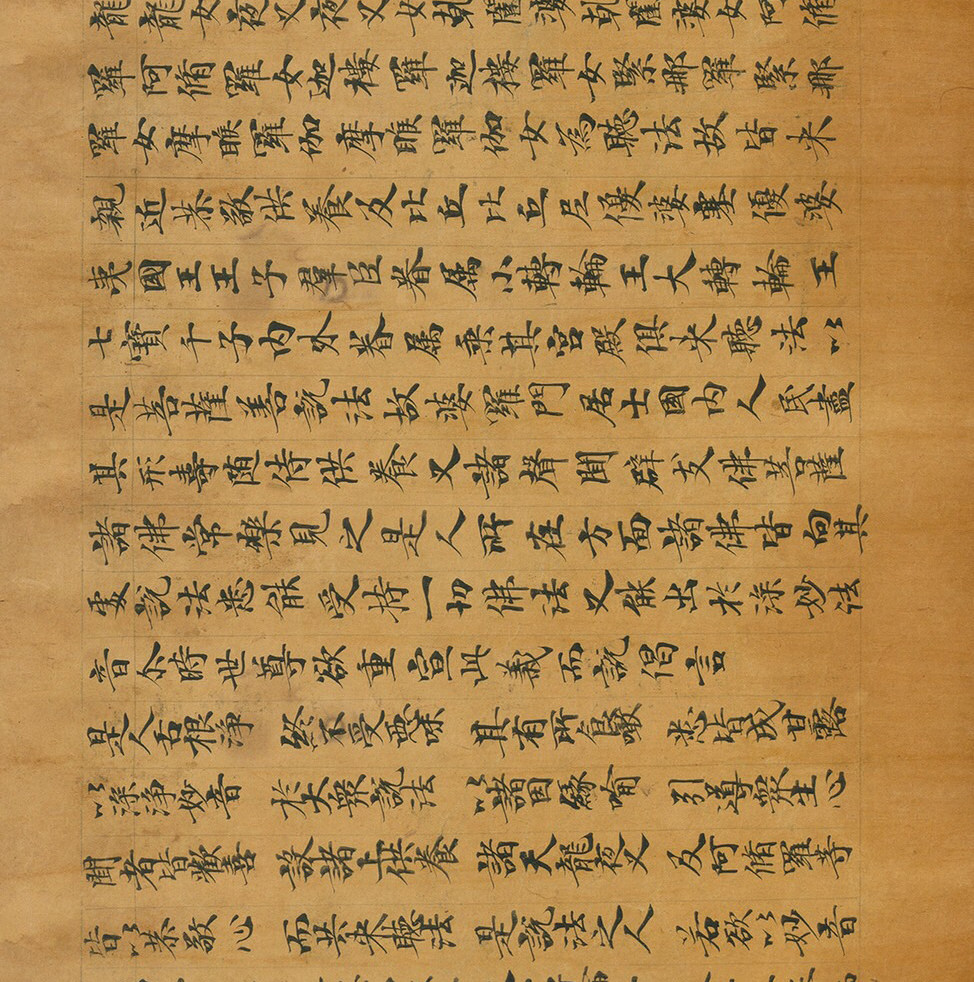 龍龍女夜叉夜叉女乾闥婆乾闥婆女阿脩
羅阿脩羅女迦樓羅迦樓羅女緊那羅緊那
羅女摩睺羅伽摩睺羅伽女為聽法故皆来
親近恭敬供養及比丘比丘尼優婆塞優婆
夷國王王子羣臣眷属小轉輪王大轉輪王
七寶千子内外眷属乘其宮殿俱来聽法以
是菩薩善說法故婆羅門居士國内人民盡
其形壽随侍供養又諸聲聞辟支佛菩薩
諸佛常樂見之是人所在方面諸佛皆向其
處說法悉能受持一切佛法又能出於深妙法
音尒時世尊欲重宣此義而說偈言
是人舌根淨　終不受惡味　其有所食噉　悉皆成甘露
以深淨妙音　於大眾說法　以諸因緣喻　引導眾生心
聞者皆歡喜　設諸上供養　諸天龍夜叉　及阿脩羅等
皆以恭敬心　而共来聽法　是說法之人　若欲以妙音